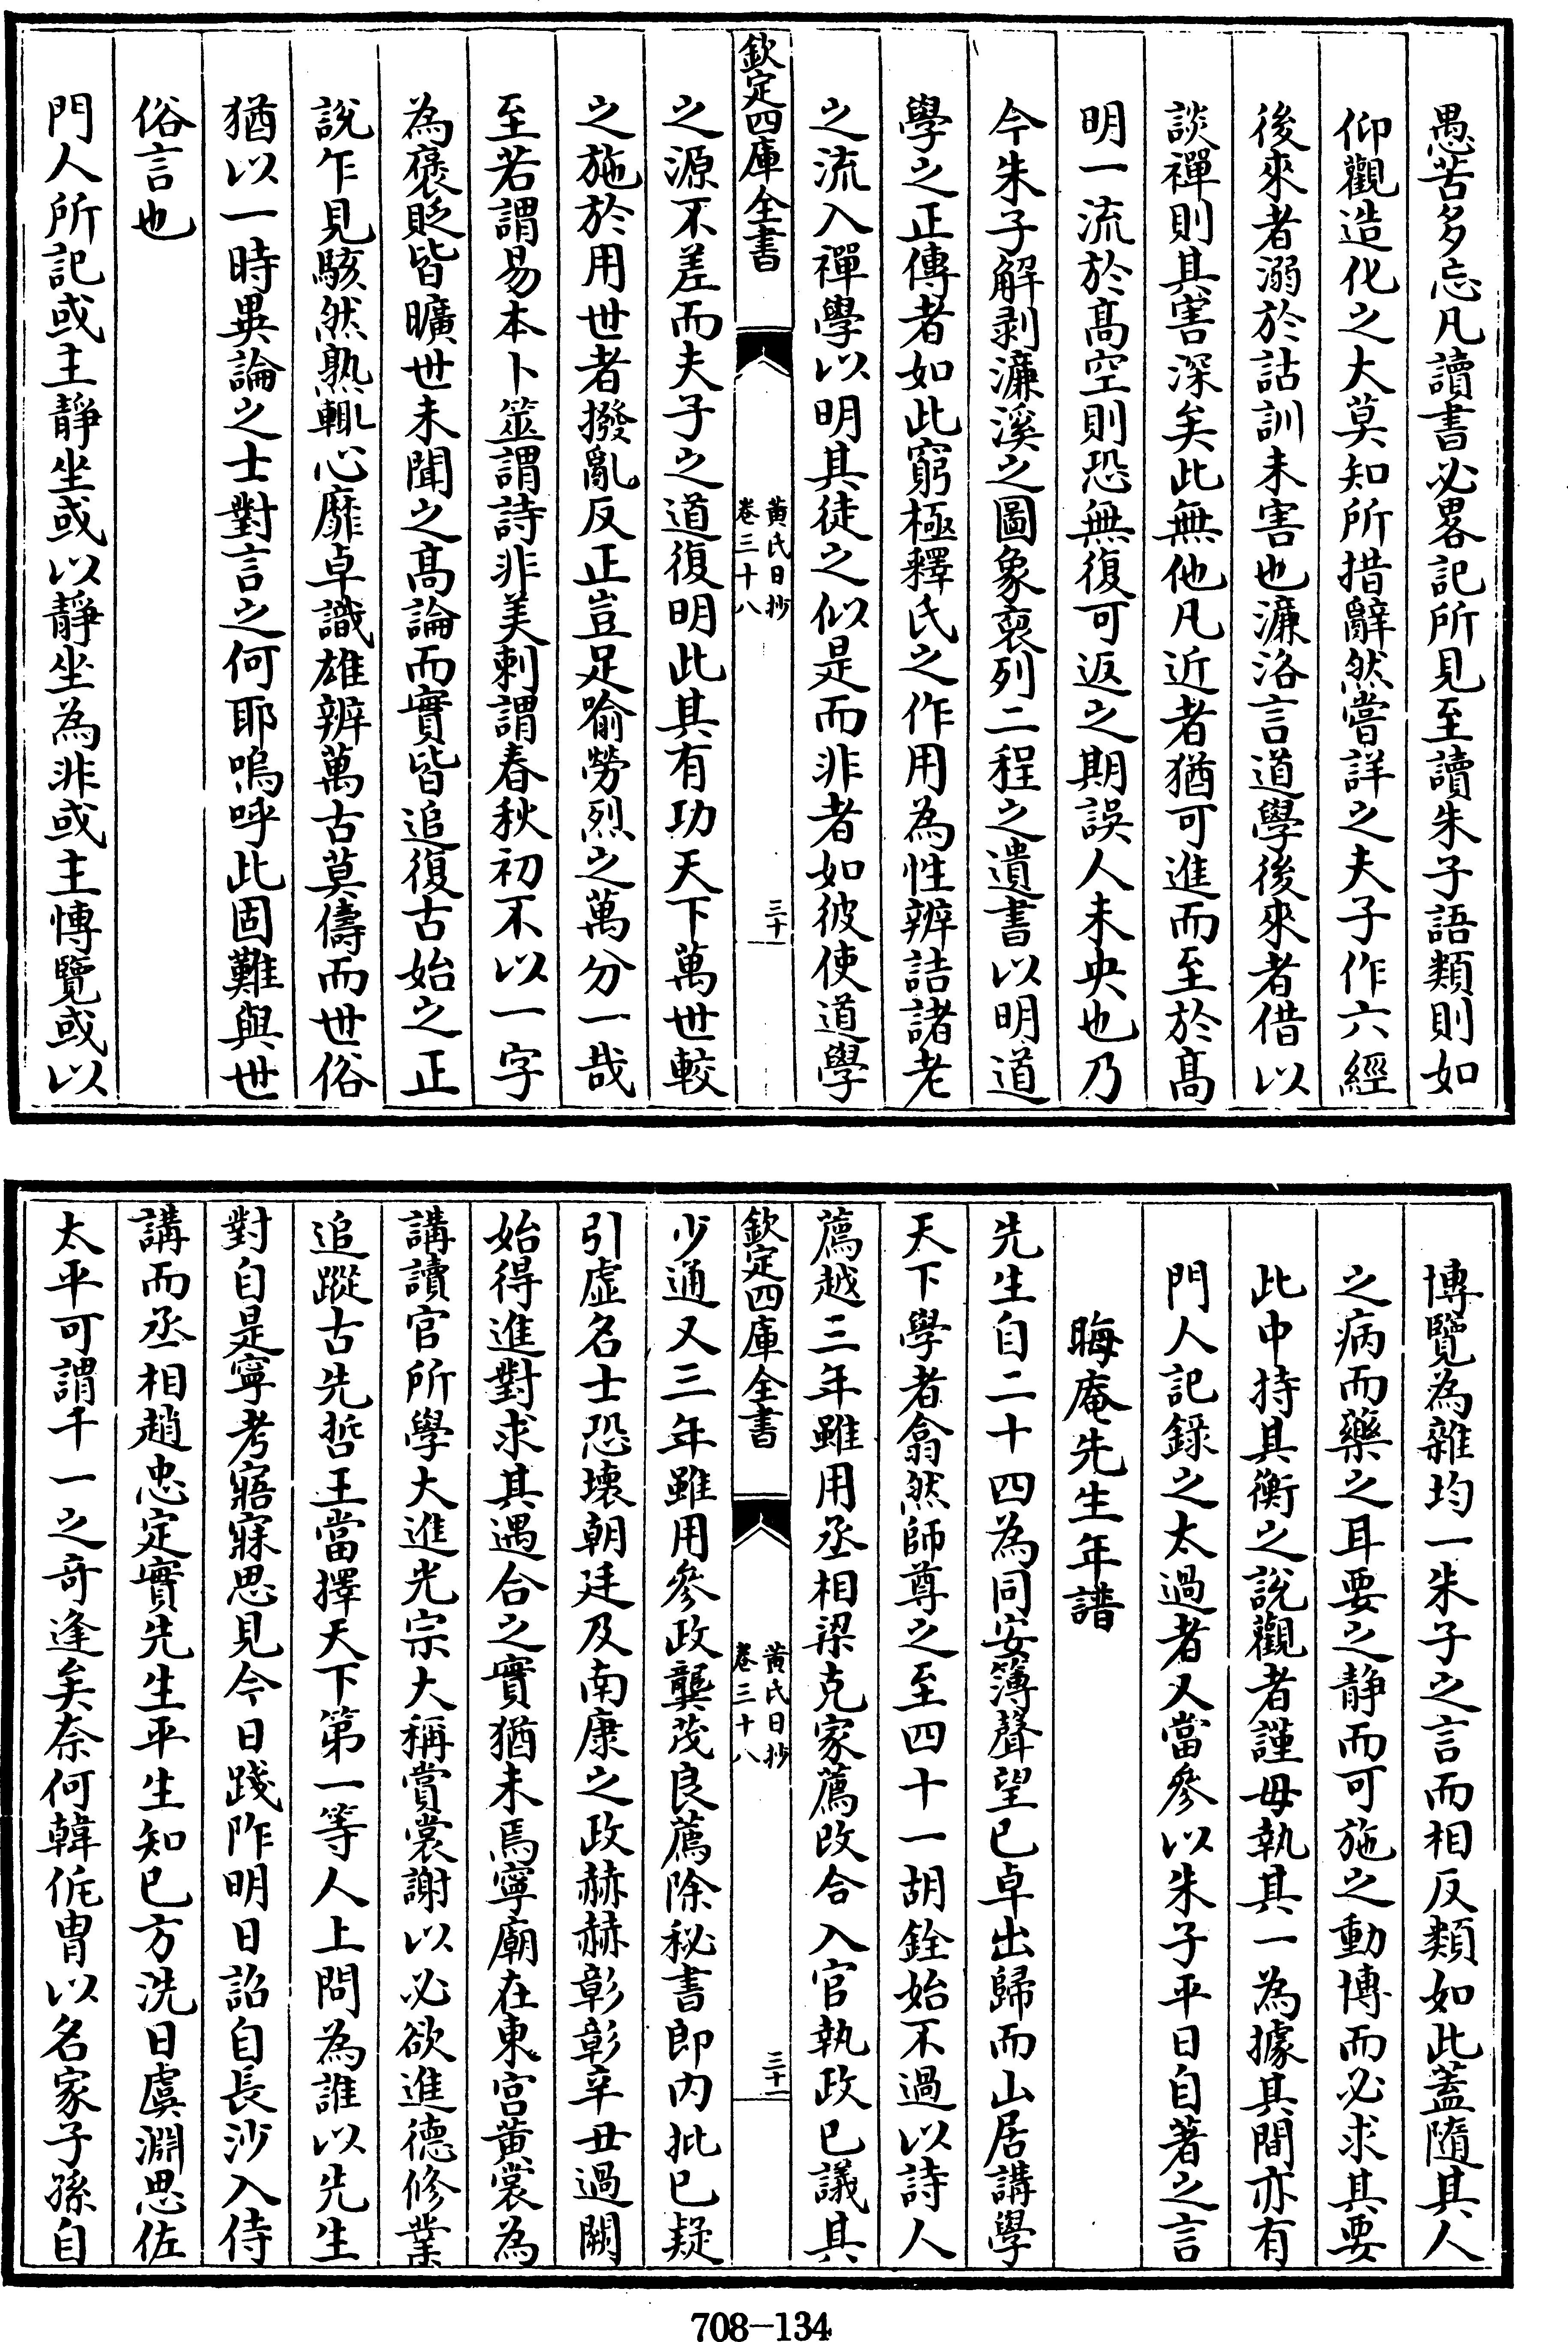 愚苦多忘凡讀書必畧記所見至讀朱子語類則如
仰觀造化之大莫知所措辭然嘗詳之夫子作六經
後來者溺於詁訓未害也濂洛言道學後來者借以
談禪則其害深矣此無他凡近者猶可進而至於髙
明一流於髙空則恐無復可返之期誤人未央也乃
今朱子解剥濂溪之圖象裒列二程之遺書以明道
學之正傳者如此窮極釋氏之作用為性辨詰諸老
之流入禪學以明其徒之似是而非者如彼使道學
欽定四庫全書
黄氏日抄
卷三十八
三十
之源不差而夫子之道復明此其有功天下萬世較
之施於用世者撥亂反正豈足喻勞烈之萬分一哉
至若謂易本卜筮謂詩非美刺謂春秋初不以一字
為褒貶皆曠世未聞之髙論而實皆追復古始之正
說乍見駭然熟輒心靡卓識雄辨萬古莫儔而世俗
猶以一時異論之士對言之何耶嗚呼此固難與世
俗言也
門人所記或主靜坐或以靜坐為非或主博覽或以
博覽為雜均一朱子之言而相反類如此蓋隨其人
之病而藥之耳要之靜而可施之動博而必求其要
此中持其衡之說觀者謹毋執其一為據其間亦有
門人記錄之太過者又當參以朱子平日自著之言
晦庵先生年譜
先生自二十四為同安簿聲望已卓出歸而山居講學
天下學者翕然師尊之至四十一胡銓始不過以詩人
薦越三年雖用丞相梁克家薦改合入官執政已議其
欽定四庫全書
黄氏日抄
卷三十八
三十一
少通又三年雖用參政龔茂良薦除秘書郎内批已疑
引虛名士恐壞朝廷及南康之政赫赫彰彰辛丑過闕
始得進對求其遇合之實猶未焉寧廟在東宫黄裳為
講讀官所學大進光宗大稱賞裳謝以必欲進德修業
追蹤古先哲王當擇天下第一等人上問為誰以先生
對自是寧考寤寐思見今日踐阼明日詔自長沙入侍
講而丞相趙忠定實先生平生知已方洗日虞淵思佐
太平可謂千一之竒逢矣奈何韓侂胄以名家子孫自
708-134